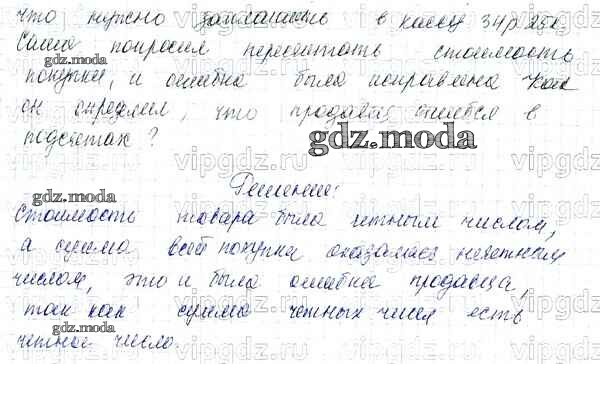 что нужно заплатить в кассу 34р. 25к.
Саша попросил пересчитать стоимость
покупки, и ошибка была исправлена Как
он определил, что продавец ошибся в
подсчетах?
gdz.moda
Решение:
gdz.moda
Стоимость товара была четным числом,
а сумма всей покупки оказалась нечетным
числом, это и была ошибка продавца,
так как сумма четных чисел есть
gdz.moda
четное число.